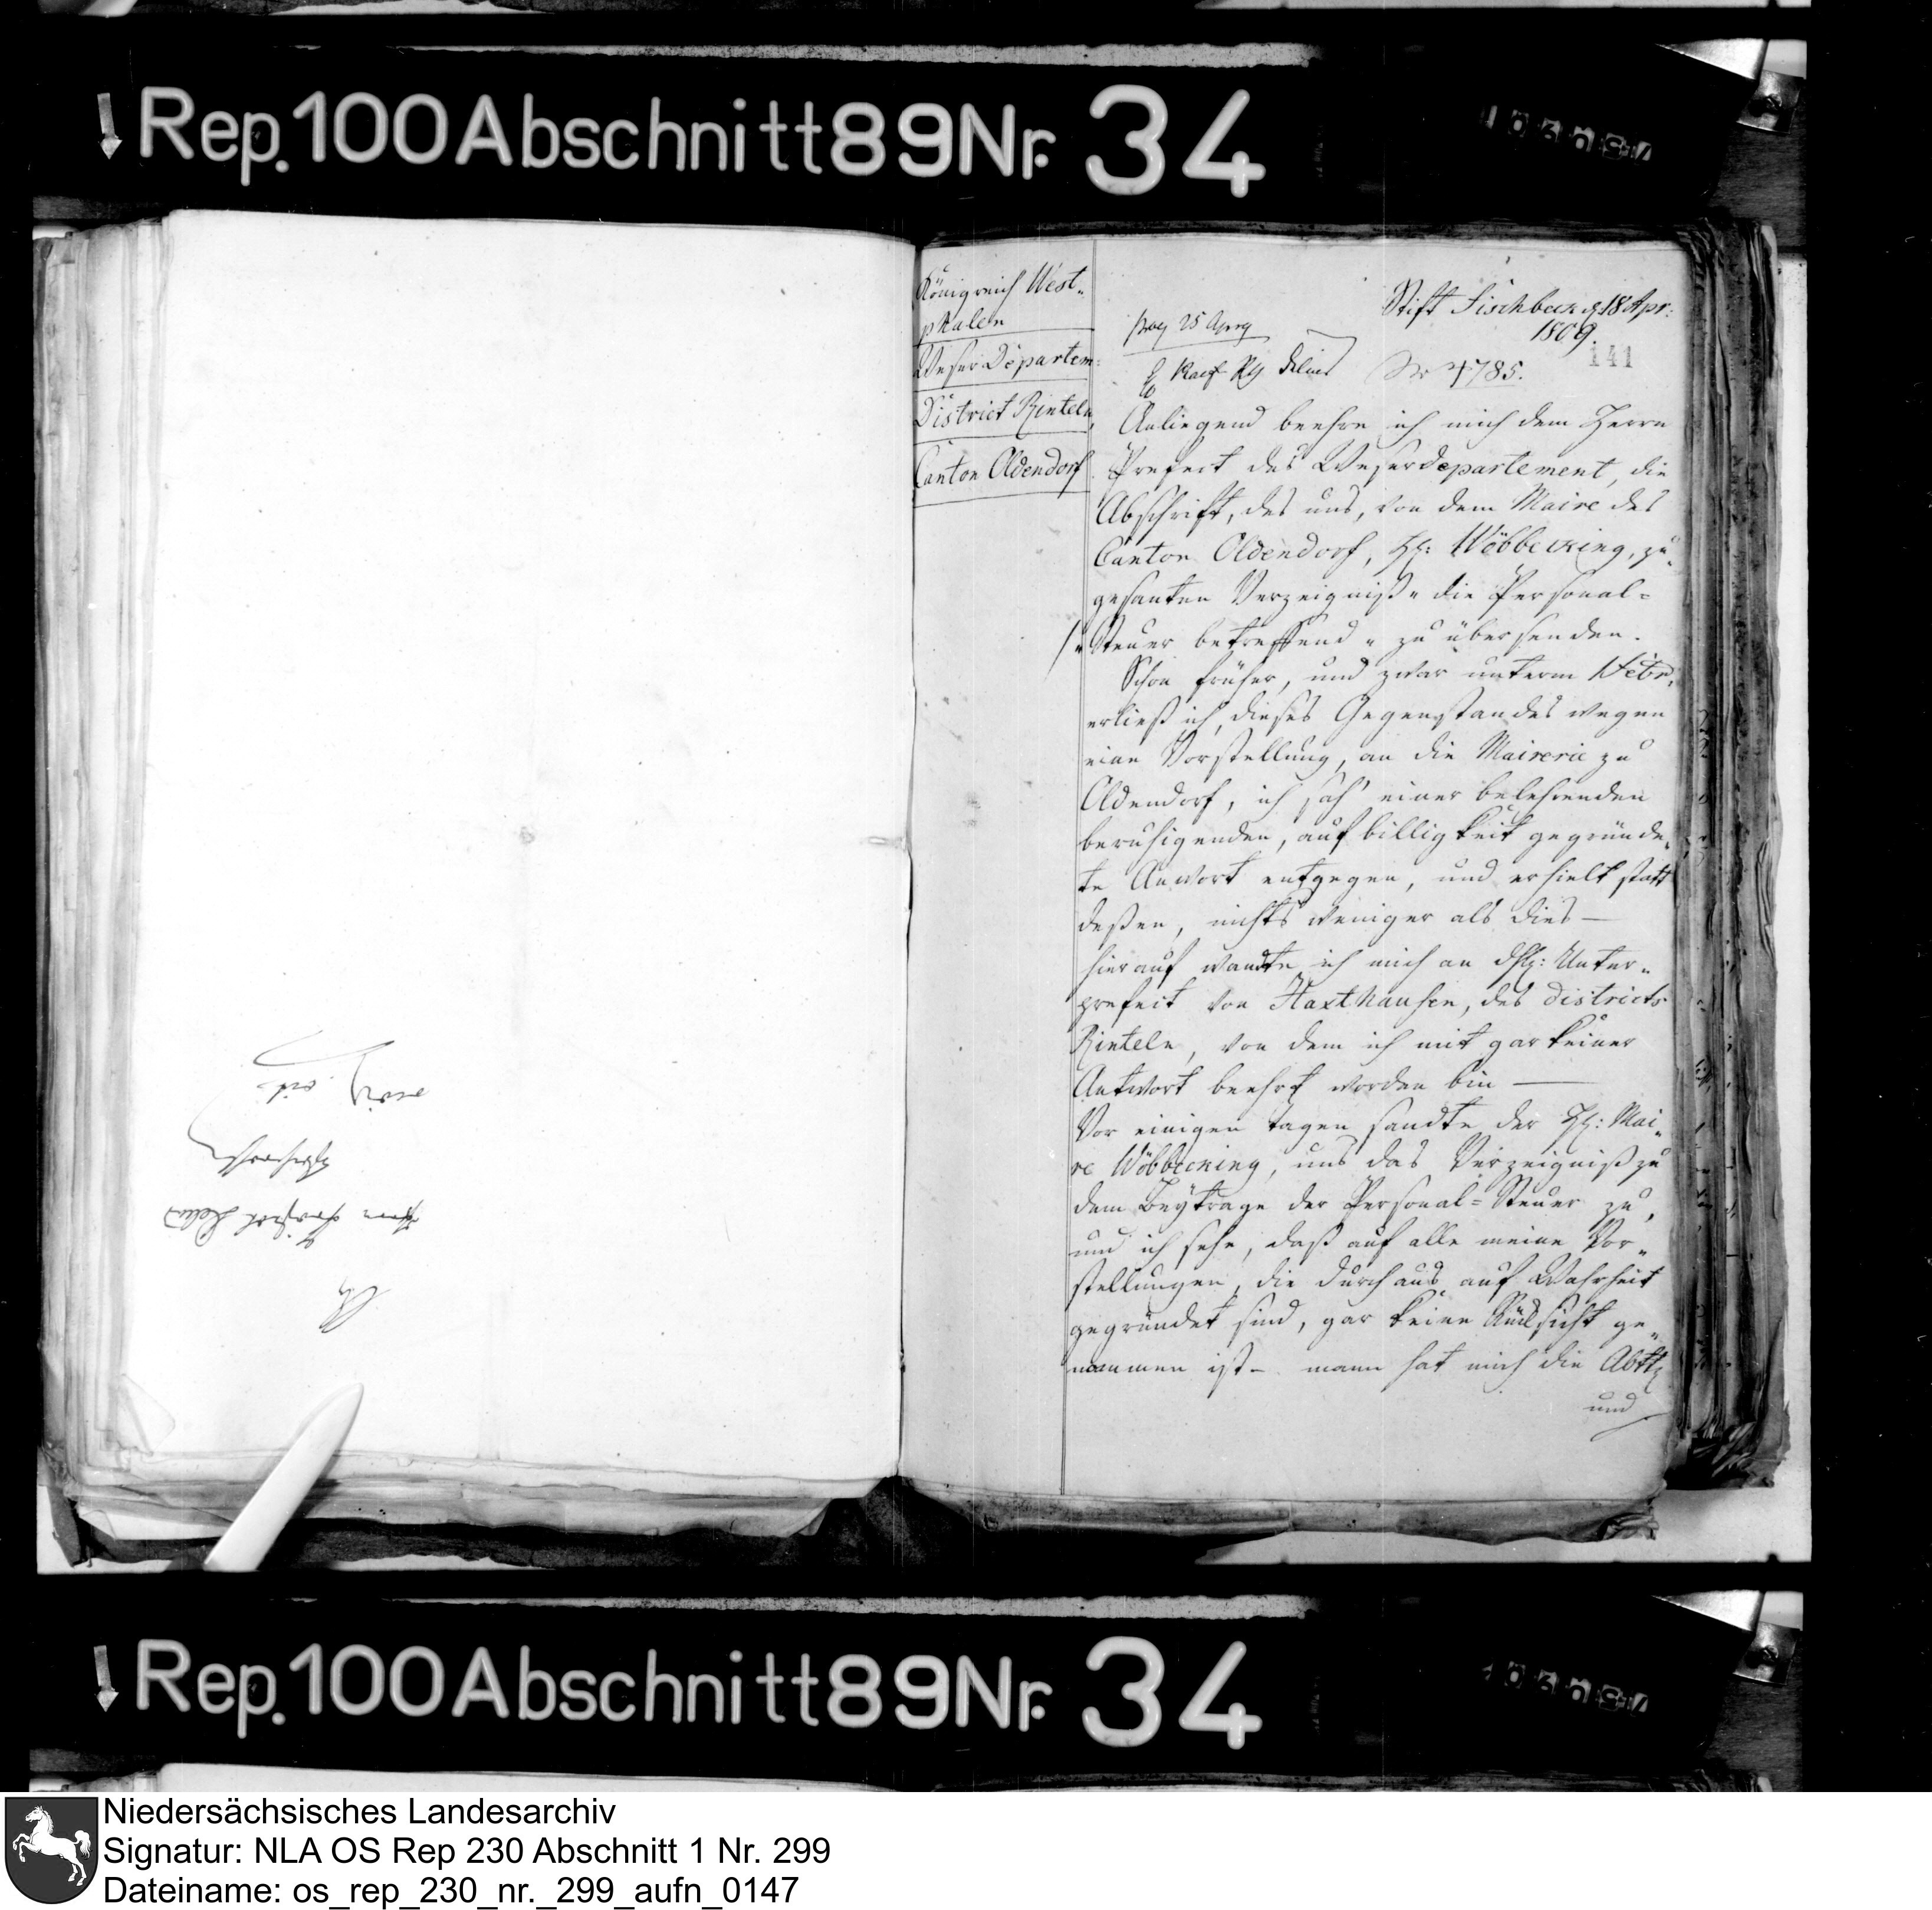 Rep. 100 Abschnitt 89 Nr. 34
Königreich West„
phalen
Weser Departem:
District Rinteln
Canton Oldendorf
Stift Fischbeck d 18 Apr:
1809.
141
25
Delius
4785.
Anliegend beehre ich mich dem Herrn
Prefect des Weserdepartement, die
Abschrift, des uns, von dem Maire des
Canton Oldendorf, H: Wöbbecking, zu„
gesanten Verzeigniß „ die Personal=
„Steuer betreffend „ zu übersenden.
Schon früher, und zwar unterm Febr.
erließ ich, dieses Gegenstandes wegen
eine Vorstellung, an die Mairerie zu
Oldendorf, ich sah einer belehrenden
beruhigenden, auf billigkeit gegründe„
te Anwort entgegen, und erhielt statt
deßen, nichts weniger als dies —
hierauf wandte ich mich an Unter„
prefect von Haxthausen, des Districts
Rinteln, von dem ich mit gar keiner
Antwort beehrt worden bin —
Vor einigen tagen sandte der H: Mai„
re Wöbbecking, uns das Verzeigniß zu
dem Beytrage der Personal=Steuer zu,
und ich sehe, daß auf alle meine Vor„
stellungen, die durchaus auf Wahrheit
gegründet sind, gar keine Rücksicht ge„
nommen ist – mann hat mich die
und
Rep. 100 Abschnitt 89 Nr. 34
Niedersächsisches Landesarchiv
Signatur: NLA OS Rep 230 Abschnitt 1 Nr. 299
Dateiname: os_rep_230_nr._299_aufn_0147